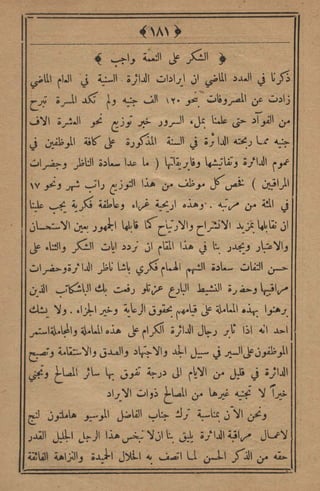 ﴿ ١٨١ ﴾
﴿ الشكر على النعمة واجب ﴾
ذكرنا في العدد الماضي ان ايرادات الدائرة السنية في العام الماضي
زادت عن المصروفات بنحو ١٢٠ الف جنيه ولم تكد المسرة تبرح
من الفوآد حتى علمنا بملء السرور خبر توزيع نحو العشرة الاف
جنيه مما ربحته الدائرة في السنة المذكورة على كافة الموظفين في
عموم الدائرة وتفاتيشها وفابريقاتها ( ما عدا سعادة الناظر وحضرات
المراقبين ) فخص كل موظف من هذا التوزيع راتب شهر ونحو ١٧
في المئة من مرتبه . وهذه اريحية غراء وعاطفة فكرية يجب علينا
ان نقابلها بمزيد الانشراح والارتياح كما قابلها الجمهور بعين الاستحسان
والاعتبار ويجدر بنا في هذا المقام ان نردد ايات الشكر والثناء على
حسن التفات سعادة الشهم الهمام فكري باشا ناظر الدائرة وحضرات
مراقبيها وحضرة النشيط البارع عزتلو رفعت بك الباشكاتب الذين
برهنوا بهذه المعاملة على قيامهم بحقوق الرعاية وخير الجزاء . ولا يشك
احد انه اذا ثابر رجال الدائرة الكرام على هذه المعاملة والمجاملة استمر
الموظفون على السير في سبيل الجد والاجتهاد والصدق والاستقامة وتصبح
الدائرة في قليل من الايام الى درجة تفوق بها سائر المصالح وتجني
خيراً لا تجنيه غيرها من المصالح ذوات الايراد
ونحن الآن بمناسبة ترك جناب الفاضل الموسيو هاملتون لنج
لاعمال مراقبة الدائرة يليق بنا ان لا نبخس هذا الرجل الجليل القدر
حقه من الذكر الحسن لما اتصف به الخلال الحميدة والنزاهة الفائقة